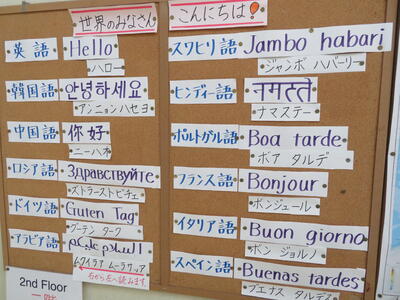 世界のみなさん
こんにちは!
英語 Hello
ハロー
韓国語 안녕하세요
アンニョンハセヨ
中国語 你好
ニーハオ
ロシア語 Здравствуйте
ズトラーストビチェ
ドイツ語 Guten Tag
グーテン ターク
アラビア語
右から左へ読みます。
スワヒリ語 Jambo habari
ジャンボ ハバーリー
ヒンディー語 नमस्ते
ナマステー
ポルトガル語 Boa tarde
ボア タルデ
フランス語 Bonjour
ボンジュール
イタリア語 Buon giorno
ボン ジョルノ
スペイン語 Buenas tardes
ブエナス タルデス
2nd Floor